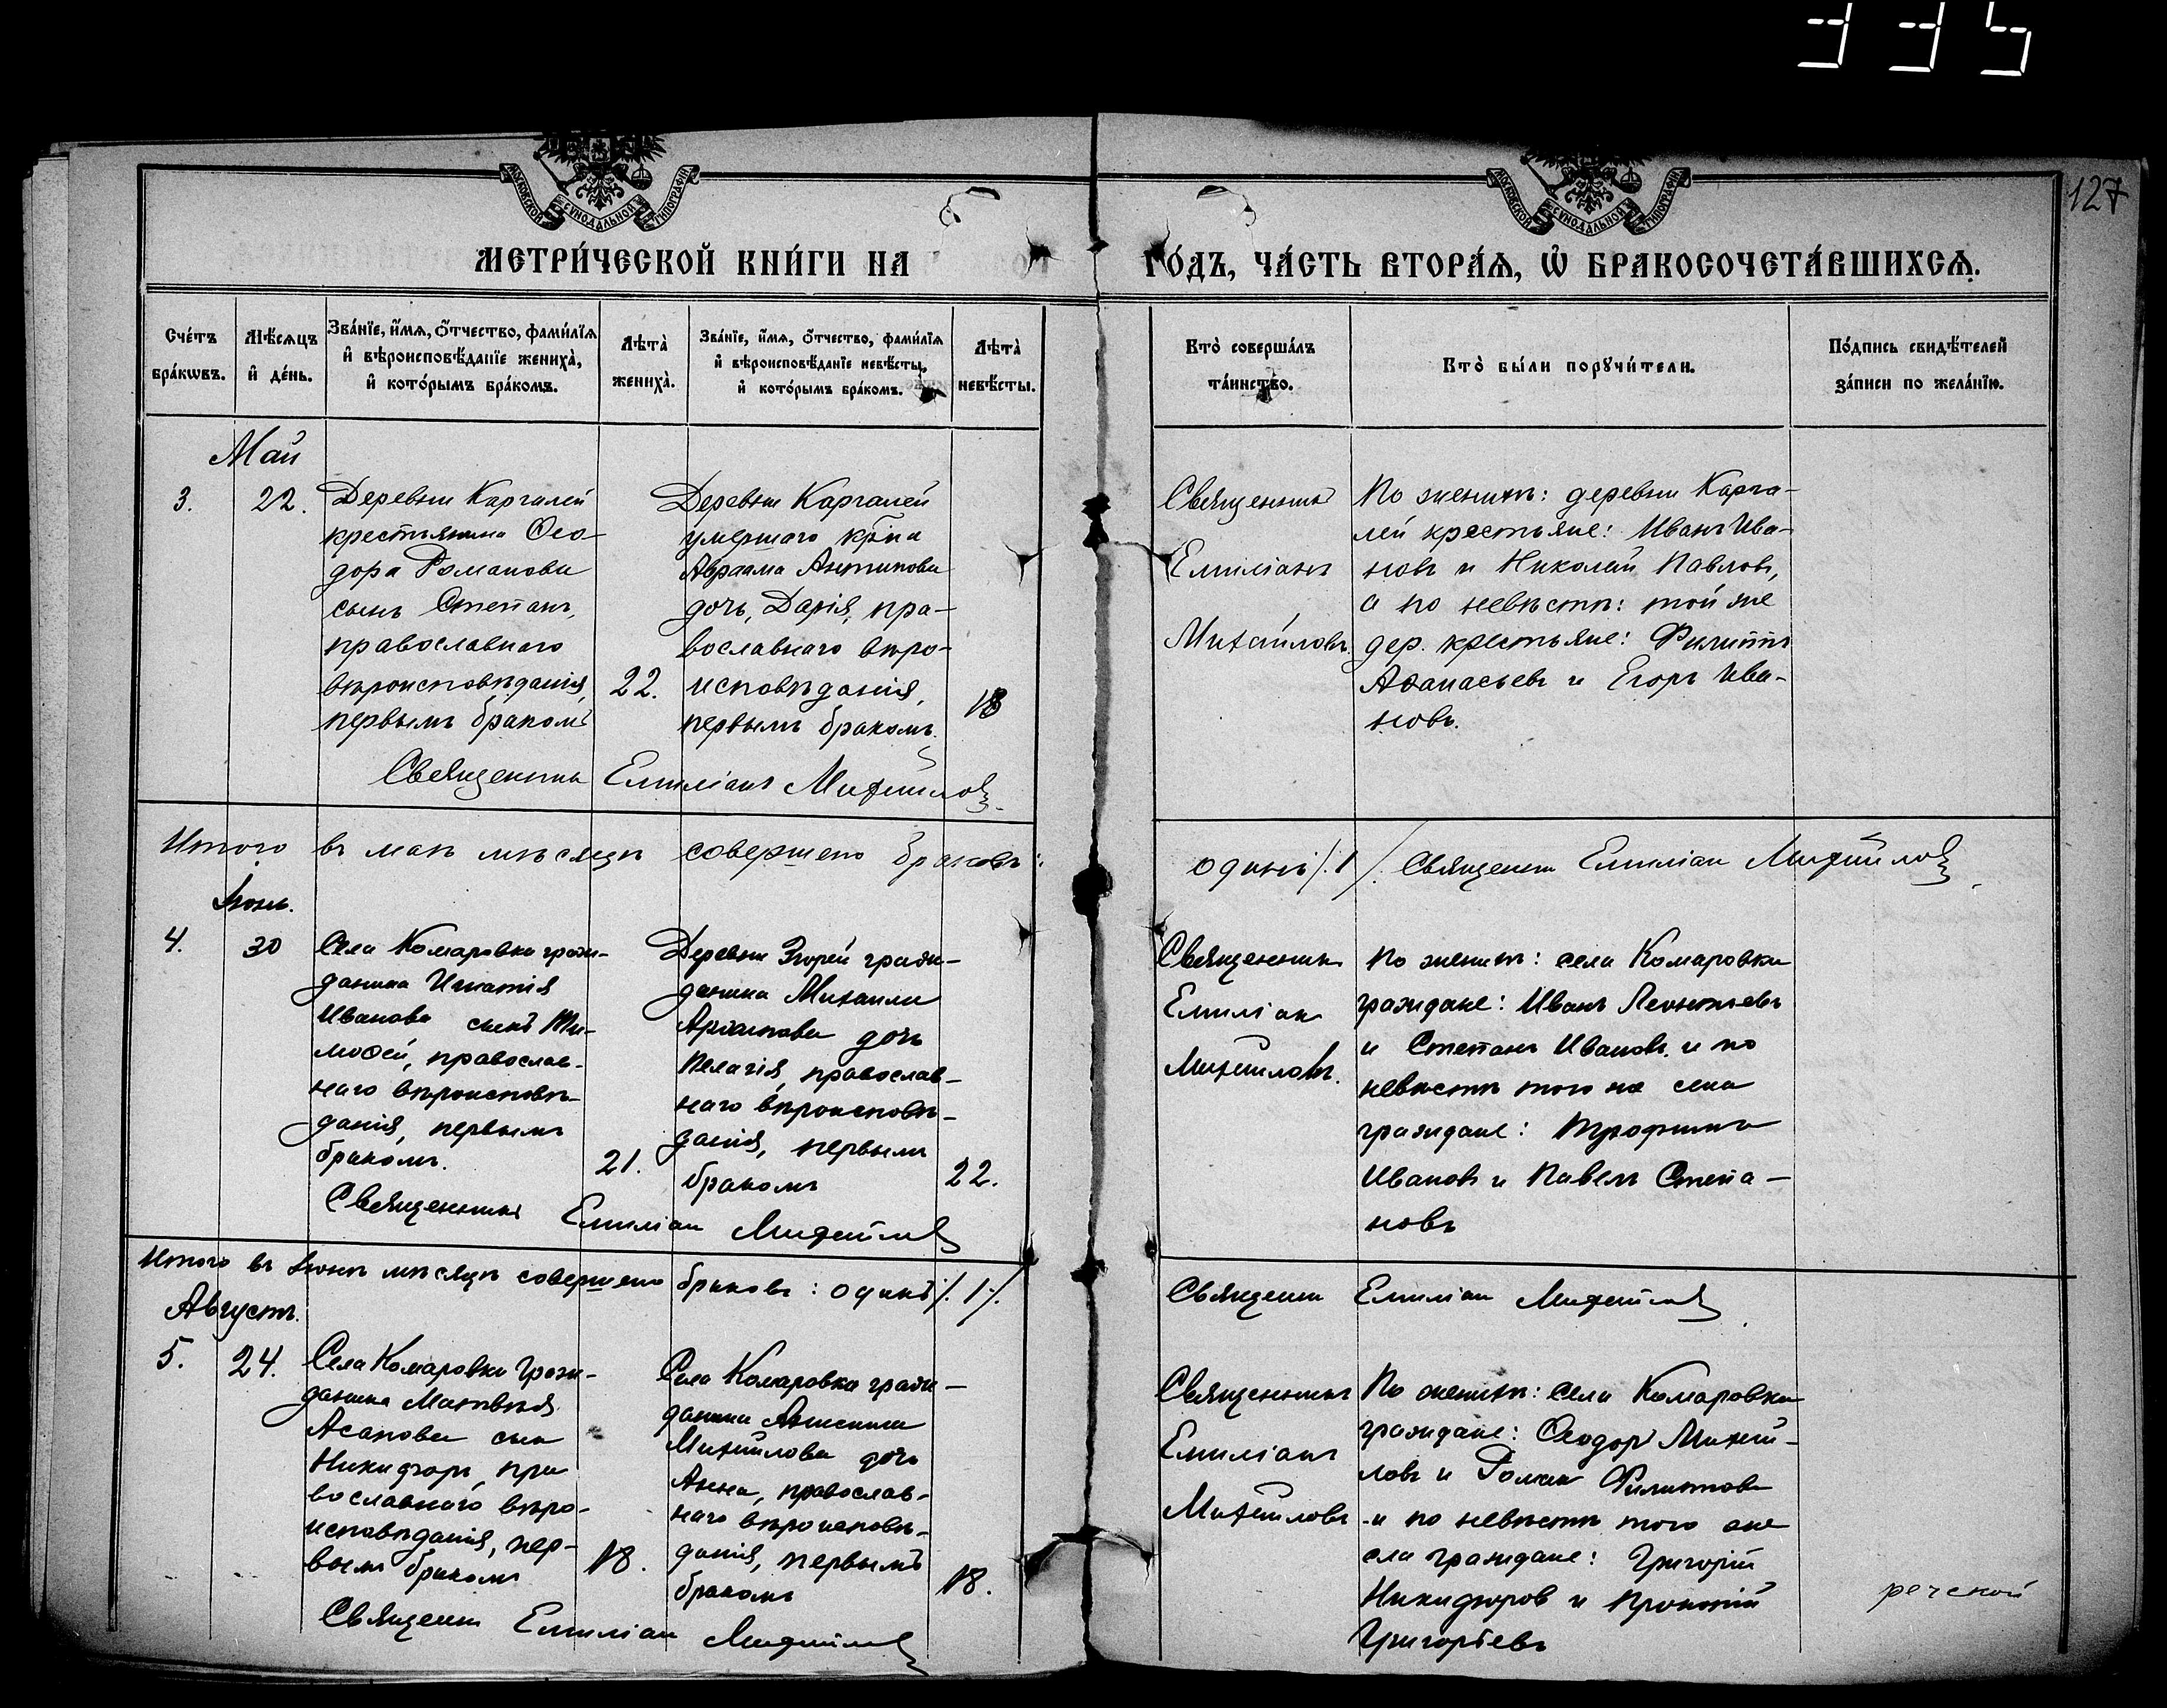 335
127
МОСКОВСКОЙ СѴНОДАЛЬНОЙ ТИПОГРАФІИ
МОСКОВСКОЙ СѴНОДАЛЬНОЙ ТИПОГРАФІИ
МЕТРИ́ЧЕСКОЙ КНИ́ГИ НА
ГО́ДЪ, ЧА́СТЬ ВТОРА́Ѧ, Ѡ҆ БРАКОСОЧЕТА́ВШИХСѦ.
Сче́тъ
бра́кѡвъ.
Мѣ́сѧцъ
и҆ де́нь.
Зва́нїе, и҆́мѧ, ѻ҆́тчество, фами́лїѧ
и҆ вѣроисповѣ́данїе жениха̀,
и҆ кото́рымъ бра́комъ.
Лѣта̀
жениха̀.
Зва́нїе, и҆́мѧ, ѻ҆́тчество, фами́лїѧ
и҆ вѣроисповѣ́данїе невѣ́сты,
и҆ кото́рымъ бра́комъ.
Лѣта̀
невѣ́сты.
Кто̀ соверша́лъ
та́инство.
Кто̀ бы́ли порꙋчи́тели.
По́дпись свидѣ́телей
за́писи по жела́нїю.
Май
3.
22.
Деревни Каргалей
крестьянина Ѳео-
дора Романова
сынъ Степанъ,
православнаго
вѣроисповѣданія,
первымъ бракомъ
22.
Деревни Каргалей
умершаго кр-на
Авраама Антипова
дочь, Дарія, пра-
вославнаго вѣро-
исповѣданія,
первымъ бракомъ.
18
Священникъ Емиліанъ Михайловъ.
Священникъ
Емиліанъ
Михайловъ.
По женихѣ: деревни Карга-
лей крестьяне: Иванъ Ива-
новъ и Николай Павловъ,
а по невѣстѣ: той же
дер. крестьяне: Филиппъ
Аѳанасьевъ и Егоръ Ива-
новъ.
Итого въ маѣ мѣсяцѣ совершено браковъ:
одинъ /.1/. Священникъ Емиліанъ Михайловъ.
Іюнь.
4.
30
Села Комаровки граж-
данина Игнатія
Иванова сынъ Ти-
моѳей, православ-
наго вѣроисповѣ-
данія, первымъ
бракомъ.
21.
граж-
данина Михаила
дочь
Пелагія, православ-
наго вѣроисповѣ-
данія, первымъ
бракомъ
22.
Священникъ Емиліанъ Михайловъ
Священникъ
Емиліанъ
Михайловъ.
По женихѣ: села Комаровки
граждане: Иванъ Леонтьевъ
и Степанъ Ивановъ, и по
невѣстѣ того же села
граждане: Трофимъ
Ивановъ и Павелъ Степа-
новъ
Итого въ Іюнѣ мѣсяцѣ совершено браковъ: одинъ /.1/.
Священникъ Емиліанъ Михайловъ.
Августъ.
5.
24.
Села Комаровки граж-
данина Матвѣя
сынъ
Никифоръ, пра-
вославнаго вѣро-
исповѣданія, пер-
вымъ бракомъ
18.
Села Комаровки граж-
данина
Михайлова дочь
Анна, православ-
наго вѣроисповѣ-
данія, первымъ
бракомъ
18.
Священникъ Емиліанъ Михайловъ
Священникъ
Емиліанъ
Михайловъ
По женихѣ: села Комаровки
граждане: Ѳеодоръ Михай-
ловъ и Романъ Филипповъ
и по невѣстѣ того же
села граждане: Григорій
Никифоров и Прокопій
Григорьевъ